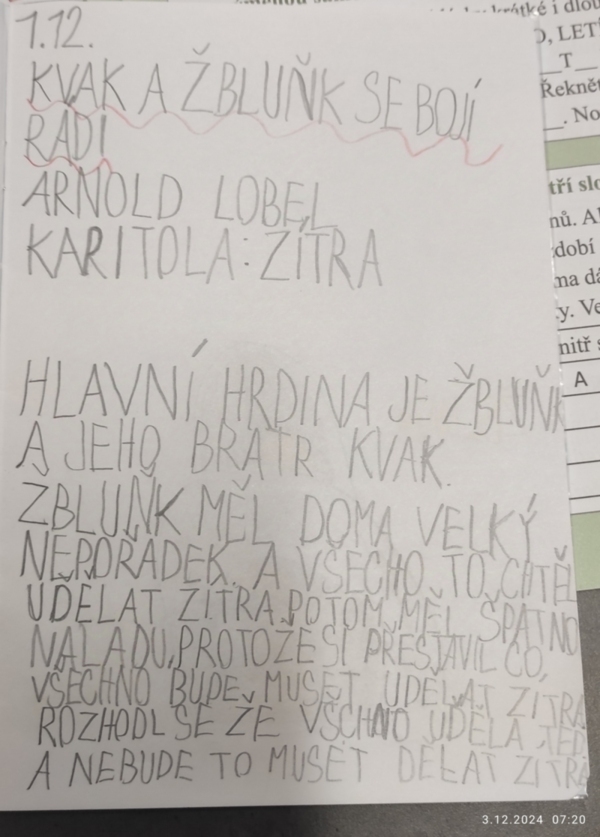 1.12.
KVAK A ŽBLUŇK SE BOJÍ
RÁDI
ARNOLD LOBEL
KARITOLA: ZÍTRA
HLAVNÍ HRDINA JE ŽBLUŇK
A JEHO BRATR KVAK.
ŽBLUŇK MĚL DOMA VELKÝ
NEPOŘÁDEK. A VŠECHO TO CHTĚL
UDĚLAT ZÍTRA. POTOM MĚL ŠPATNO
NÁLADU, PROTOŽE SI PŘESTAVIL CO,
VŠECHNO BUDE MUSET UDĚLAT ZÍTRA
ROZHODL SE ŽE VŠCHNO UDĚLÁ TEĎ
A NEBUDE TO MUSET DĚLAT ZÍTRA
krátké i dlou
O, LET
T
Řekněte
No
tří slo
nů. A
dobí
ma dá
y. Ve
nitř s
A
3.12.2024 07:20